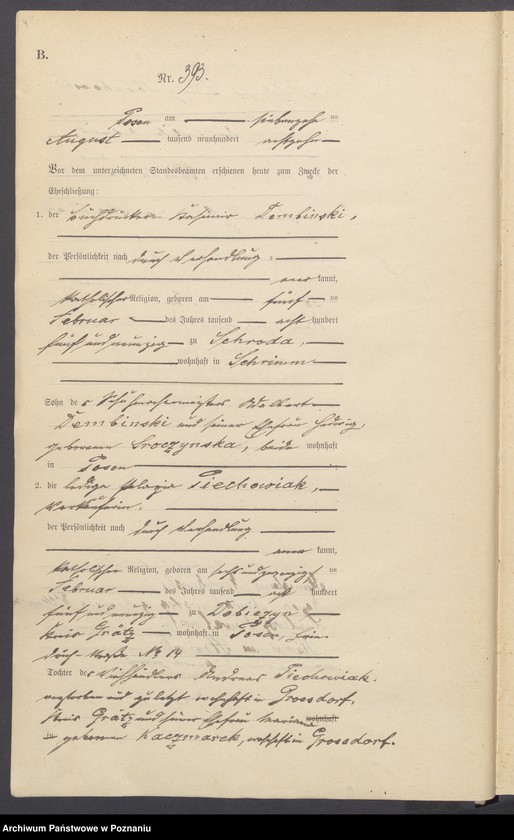 B.
Nr. 393.
Posen am siebenzehnten
August tausend neunhundert achtzehn
Vor dem unterzeichneten Standesbeamten erschienen heute zum Zwecke der
Eheschließung:
1. der Buchdrucker Kasimir Dembinski,
der Persönlichkeit nach durch Verhandlung
anerkannt,
katholischer Religion, geboren am fünften
Februar des Jahres tausend acht hundert
fünf und neunzig zu Schroda,
wohnhaft in Schrimm
Sohn des Schuhmachermeisters Adalbert
Dembinski und seiner Ehefrau Hedwig,
geborenen Sroczynska, beide wohnhaft
in Posen
2. die ledige Pelagia Piechowiak,
Verkäuferin,
der Persönlichkeit nach durch Verhandlung
anerkannt,
katholischer Religion, geboren am sechsundzwanzigsten
Februar des Jahres tausend acht hundert
fünf und neunzig zu Dobiezyn
Kreis Grätz wohnhaft in Posen,
straße No 14
Tochter des Viehhändlers Andreas Piechowiak,
verstorben und zuletzt wohnhaft in Grossdorf,
Kreis Grätz und seiner Ehefrau Marianna wohnhaft
in geborenen Kaczmarek, wohnhaft in Grossdorf.
Archiwum Państwowe w Poznaniu